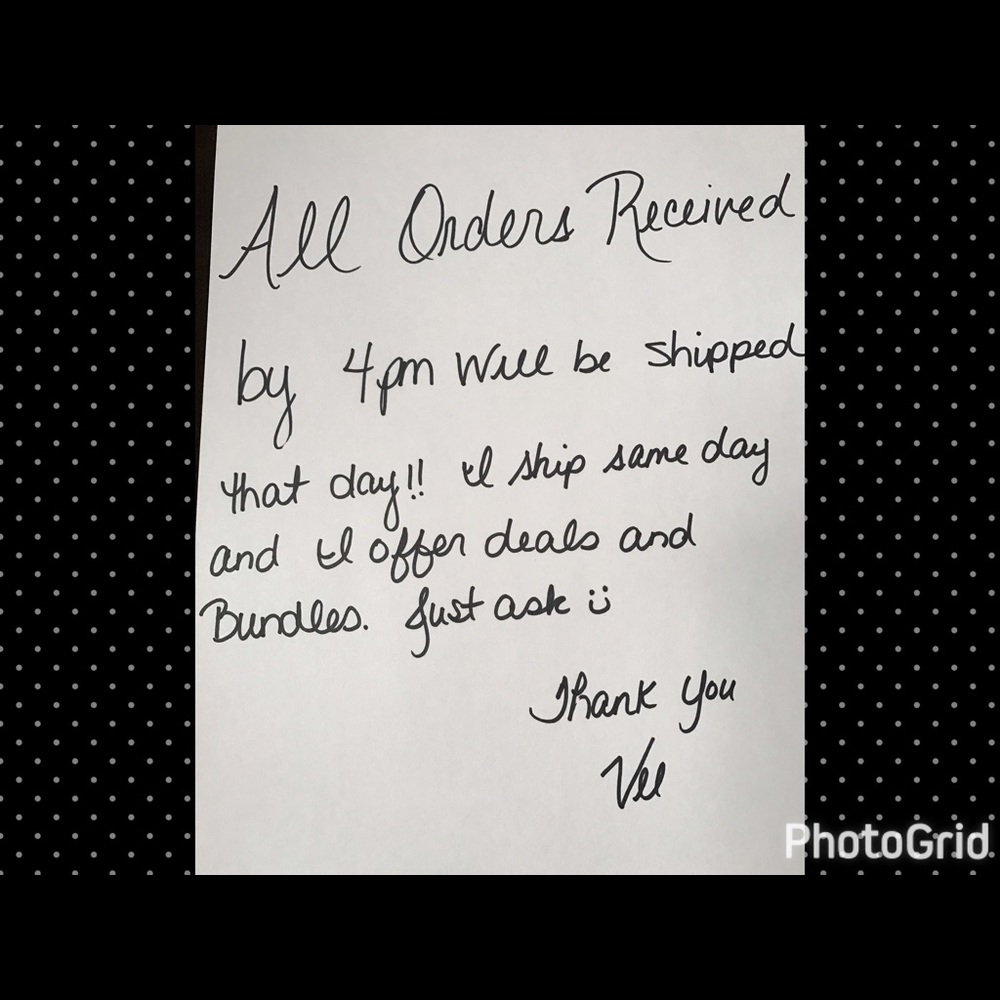 All Orders Received
by 4pm Will be shipped
that day!! I ship same day
and I offer deals and
Bundles. Just ask ü
Thank You
Vee
PhotoGrid